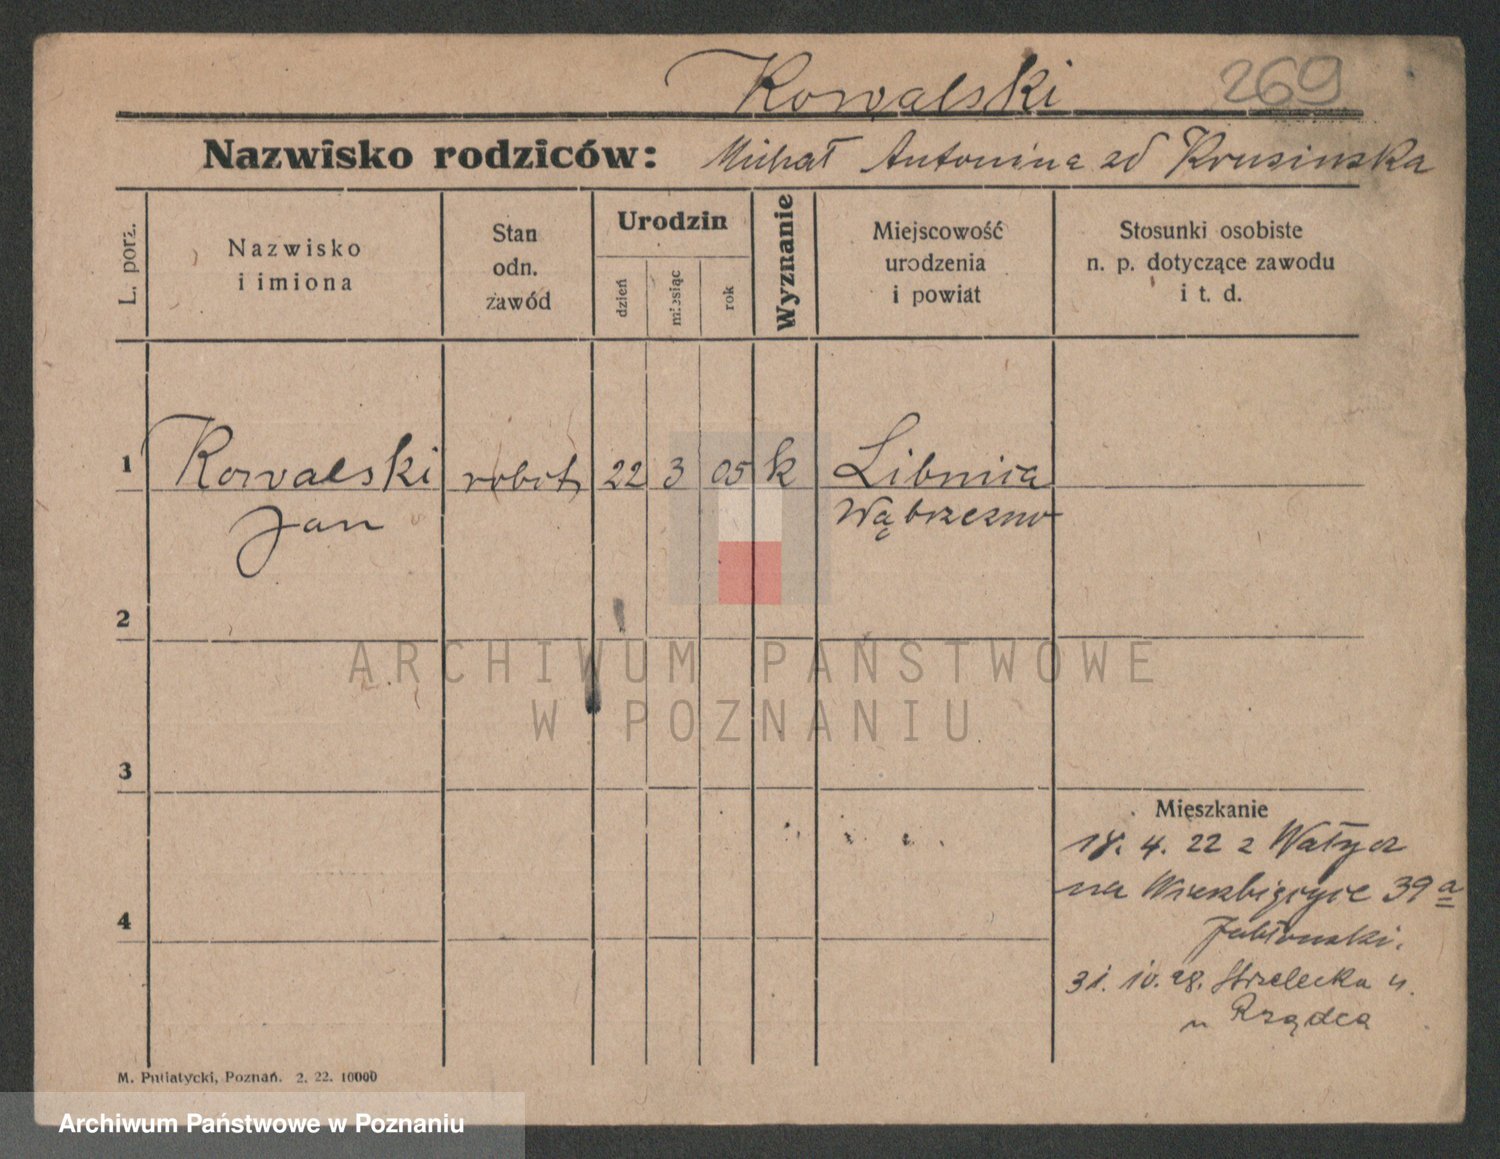 Kowalski
269
Nazwisko rodziców: Michał Antonina zd Krusinska
L. porz.
Nazwisko
i imiona
Stan
odn.
zawód
Urodzin
dzień
miesiąc
rok
Wyznanie
Miejscowość
urodzenia
i powiat
Stosunki osobiste
n. p. dotyczące zawodu
i t. d.
1 Kowalski robot 22 3 05 k
Jan
Wąbrzezno
2
ARCHIWUM PAŃSTWOWE
W POZNANIU
3
Mieszkanie
18. 4. 22 z Wałycz
na 39a
Jabłonski.
31. 10. 28. Strzelecka
u Rządca
4
M. Putiatycki, Poznań. 2. 22. 10000
Archiwum Państwowe w Poznaniu